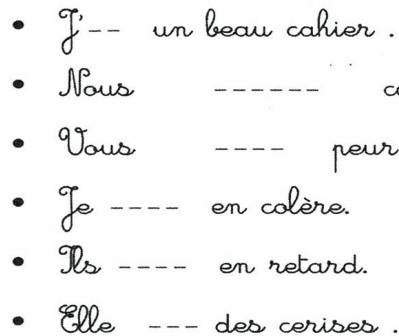 • J'-- un beau cahier .
• Nous ------
• Vous ---- peur
• Je ---- en colère.
• Ils ---- en retard.
• Elle --- des cerises .